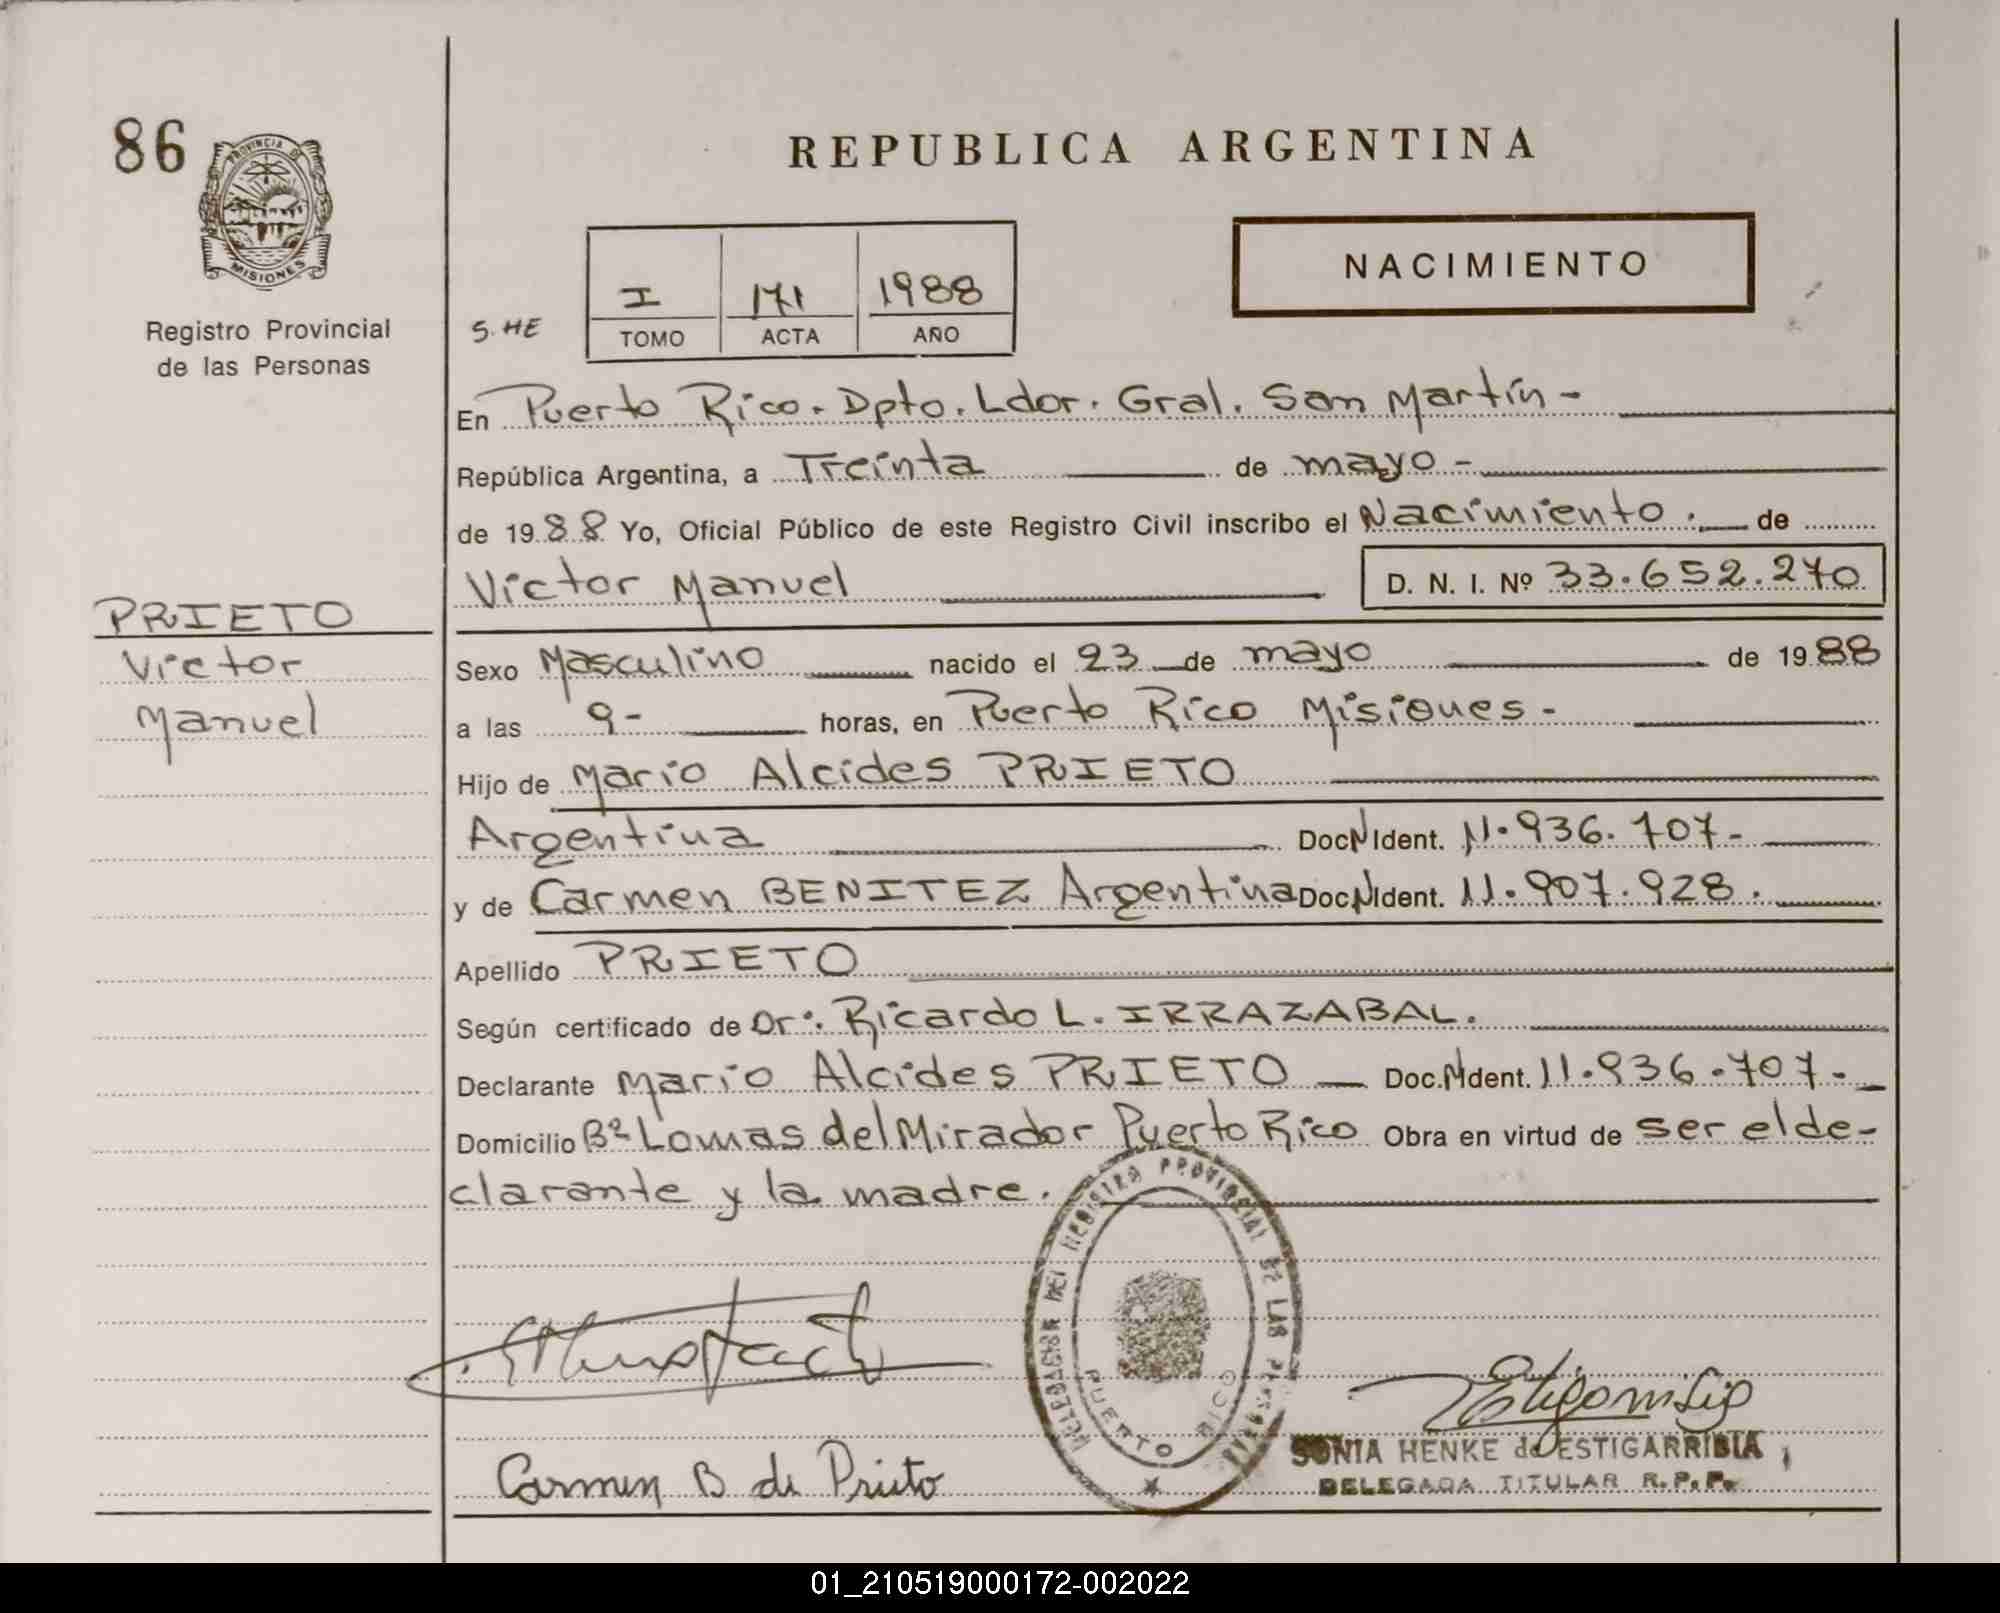 86
PROVINCIA DE
MISIONES
Registro Provincial
de las Personas
REPUBLICA ARGENTINA
NACIMIENTO
S. HE
I 171 1988
TOMO ACTA AÑO
En Puerto Rico. Dpto. Ldor. Gral. San Martín -
República Argentina, a Treinta de mayo -
de 1988 Yo, Oficial Público de este Registro Civil inscribo el Nacimiento. de
Victor Manuel D. N. I. Nº 33.652.270
PRIETO
Victor
Manuel
Sexo Masculino nacido el 23 de mayo de 1988
a las 9- horas, en Puerto Rico Misiones -
Hijo de Mario Alcides PRIETO
Argentina Doc N Ident. 11.936.707-
y de Carmen BENITEZ Argentina Doc N Ident. 11.907.928.
Apellido PRIETO
Según certificado de Dr: Ricardo L. IRRAZABAL.
Declarante Mario Alcides PRIETO Doc. N Ident. 11.936.707-
Domicilio Bº Lomas del Mirador Puerto Rico Obra en virtud de ser el de-
clarante y la madre.
DELEGACION DEL REGISTRO PROVINCIAL DE LAS PERSONAS
PUERTO RICO
Carmen B de Prieto
SONIA HENKE de ESTIGARRIBIA
DELEGADA TITULAR R.P.P.
01_210519000172-002022